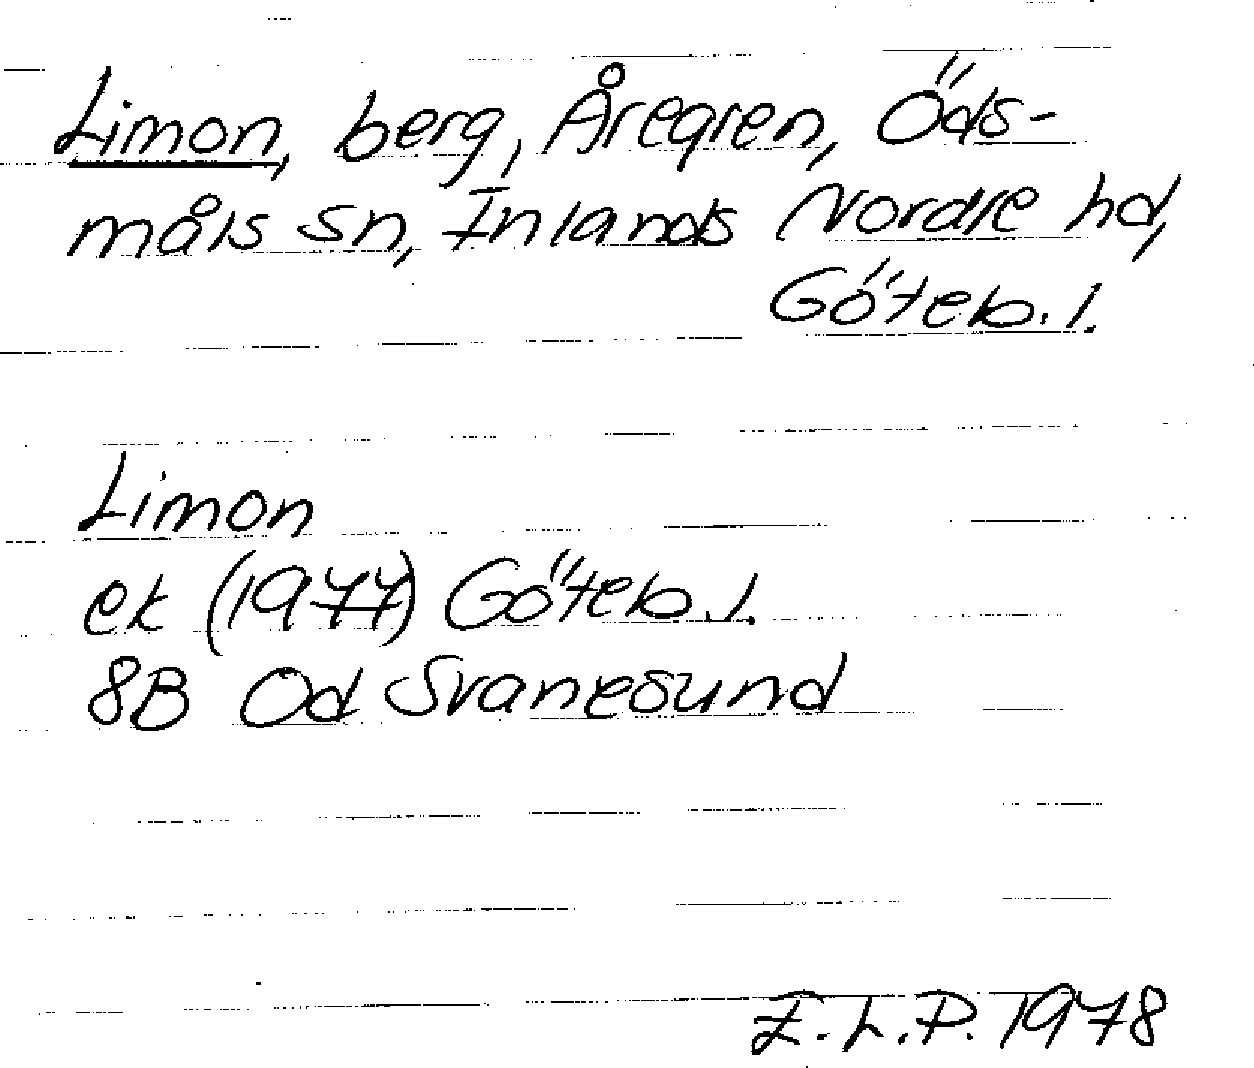 Limon, berg, Åregren, Öds-
måls sn, Inlands Nordre hd,
Göteb. l.
Limon
ek (1977) Göteb. l.
8B Od Svanesund
E.L.P. 1978